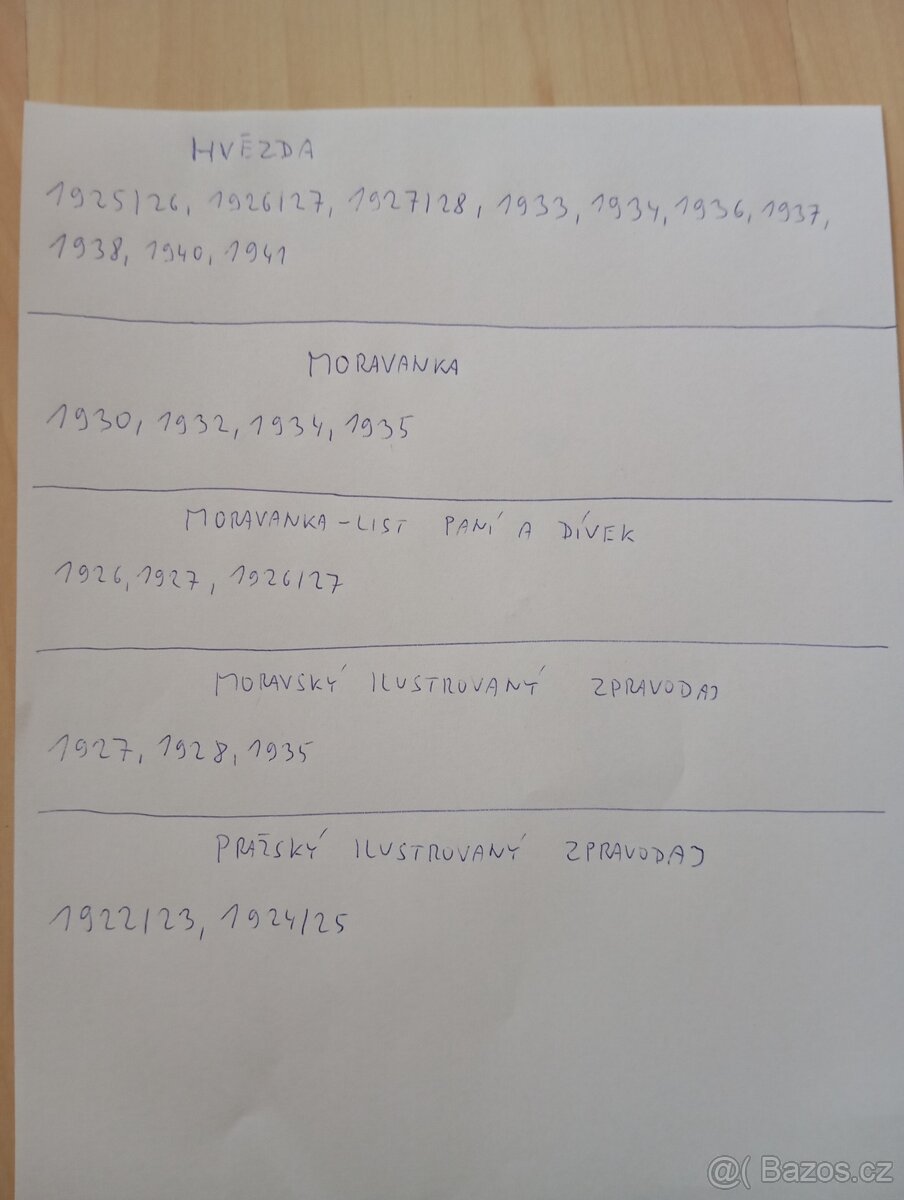 HVĚZDA
1925/26, 1926/27, 1927/28, 1933, 1934, 1936, 1937,
1938, 1940, 1941
MORAVANKA
1930, 1932, 1934, 1935
MORAVANKA-LIST PANÍ A DÍVEK
1926, 1927, 1926/27
MORAVSKÝ ILUSTROVANÝ ZPRAVODAJ
1927, 1928, 1935
PRAŽSKÝ ILUSTROVANÝ ZPRAVODAJ
1922/23, 1924/25
@( Bazos.cz